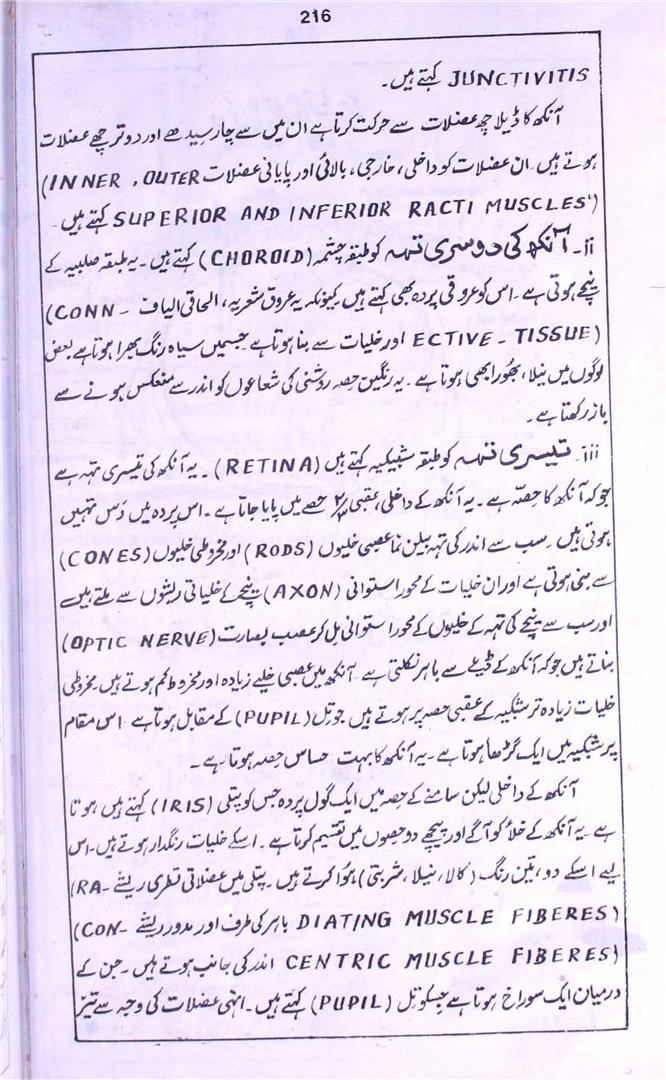 216
JUNCTIVITIS کہتے ہیں۔
آنکھ کا ڈیلا چھ عضلات سے حرکت کرتا ہے ان میں سے چار سیدھے اور دو ترچھے عضلات
ہوتے ہیں۔ ان عضلات کو داخلی، خارجی، بالائی اور پایانی عضلات INNER , OUTER)
(SUPERIOR AND INFERIOR RACTI MUSCLES' کہتے ہیں۔
ii۔ آنکھ کی دوسری تہہ کو طبقہ چشمہ (CHOROID) کہتے ہیں۔ یہ طبقہ صلبیہ کے
نیچے ہوتی ہے۔ اس کو عروقی پردہ بھی کہتے ہیں کیونکہ یہ عروق شعریہ، الحاقی الیاف CONN -)
(ECTIVE - TISSUE اور خلیات سے بنا ہوتا ہے جسمیں سیاہ رنگ بھرا ہوتا ہے بعض
لوگوں میں نیلا، بھورا بھی ہوتا ہے۔ یہ رنگین حصہ روشنی کی شعاعوں کو اندر سے منعکس ہونے سے
باز رکھتا ہے۔
iii۔ تیسری تہہ کو طبقہ شبیکیہ کہتے ہیں (RETINA)۔ یہ آنکھ کی تیسری تہہ ہے
جو کہ آنکھ کا حصّہ ہے۔ یہ آنکھ کے داخلی، عقبی حصے میں پایا جاتا ہے۔ اس پردہ میں دس تہیں
ہوتی ہیں۔ سب سے اندر کی تہہ بیلن نما عصبی خلیوں (RODS) اور مخروطی خلیوں (CONES)
سے بنی ہوتی ہے اور ان خلیات کے محور استوانی (AXON) نیچے کے خلیاتی ریشوں سے ملتے ہیں
اور سب سے نیچے کی تہہ کے خلیوں کے محور استوانی مل کر عصب بصارت (OPTIC NERVE)
بناتے ہیں جو کہ آنکھ کے ڈیلے سے باہر نکلتی ہے۔ آنکھ میں عصبی خلیے زیادہ اور مخروط کم ہوتے ہیں۔ مخروطی
خلیات زیادہ تر شبکیہ کے عقبی حصہ پر ہوتے ہیں جو تِل (PUPIL) کے مقابل ہوتا ہے۔ اس مقام
پر شبکیہ میں ایک گڑھا ہوتا ہے۔ یہ آنکھ کا بہت حساس حصہ ہوتا ہے۔
آنکھ کے داخلی لیکن سامنے کے حصہ میں ایک گول پردہ جس کو پتلی (IRIS) کہتے ہیں، ہوتا
ہے۔ یہ آنکھ کے خلا کو آگے اور پیچھے دو حصوں میں تقسیم کرتا ہے۔ اسکے خلیات رنگدار ہوتے ہیں۔ اس
لیے اسکے دو، تین رنگ (کالا، نیلا، شربتی) ہوا کرتے ہیں۔ پتلی میں عضلاتی قطری ریشے RA-)
(DIATING MUSCLE FIBERES باہر کی طرف اور مدور ریشے CON-)
(CENTRIC MUSCLE FIBERES اندر کی جانب ہوتے ہیں۔ جن کے
درمیان ایک سوراخ ہوتا ہے جسکو تِل (PUPIL) کہتے ہیں۔ انہی عضلات کی وجہ سے تیز